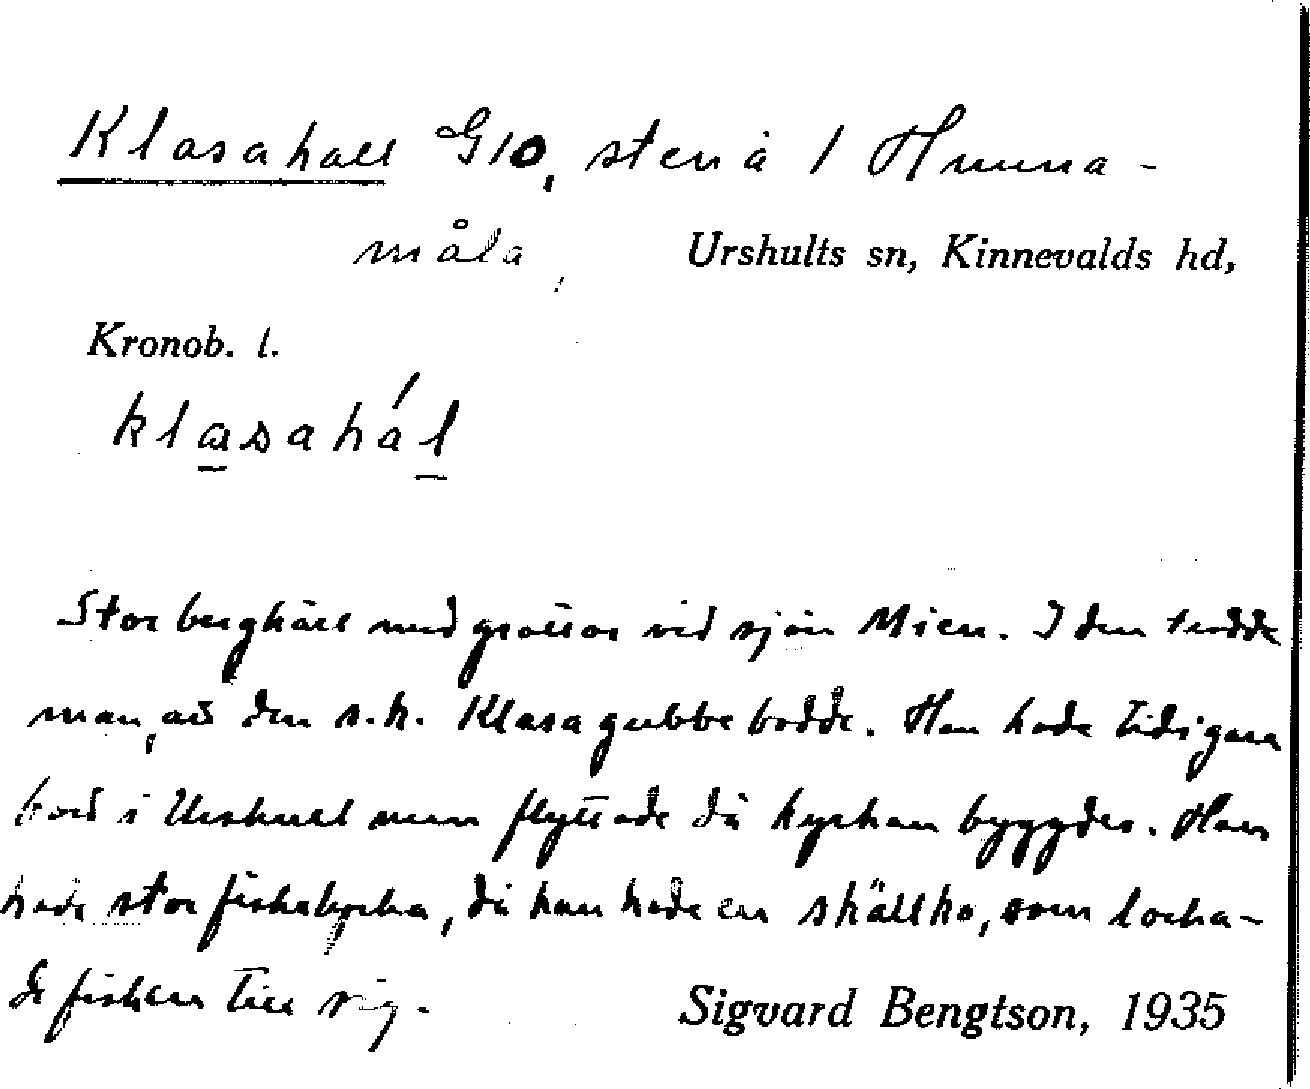 Klasahall G10, sten å 1 Hunna-
måla, Urshults sn, Kinnevalds hd,
Kronob. l.
klasahál
Stor berghäll med grottor vid sjön Mien. I den trodde
man, att den s.k. Klasagubbe bodde. Han hade tidigare
bott i Urshult men flyttade då kyrkan byggdes. Han
hade stor fiskelycka, då han hade en skällko, som locka-
de fisken till sig. Sigvard Bengtson, 1935